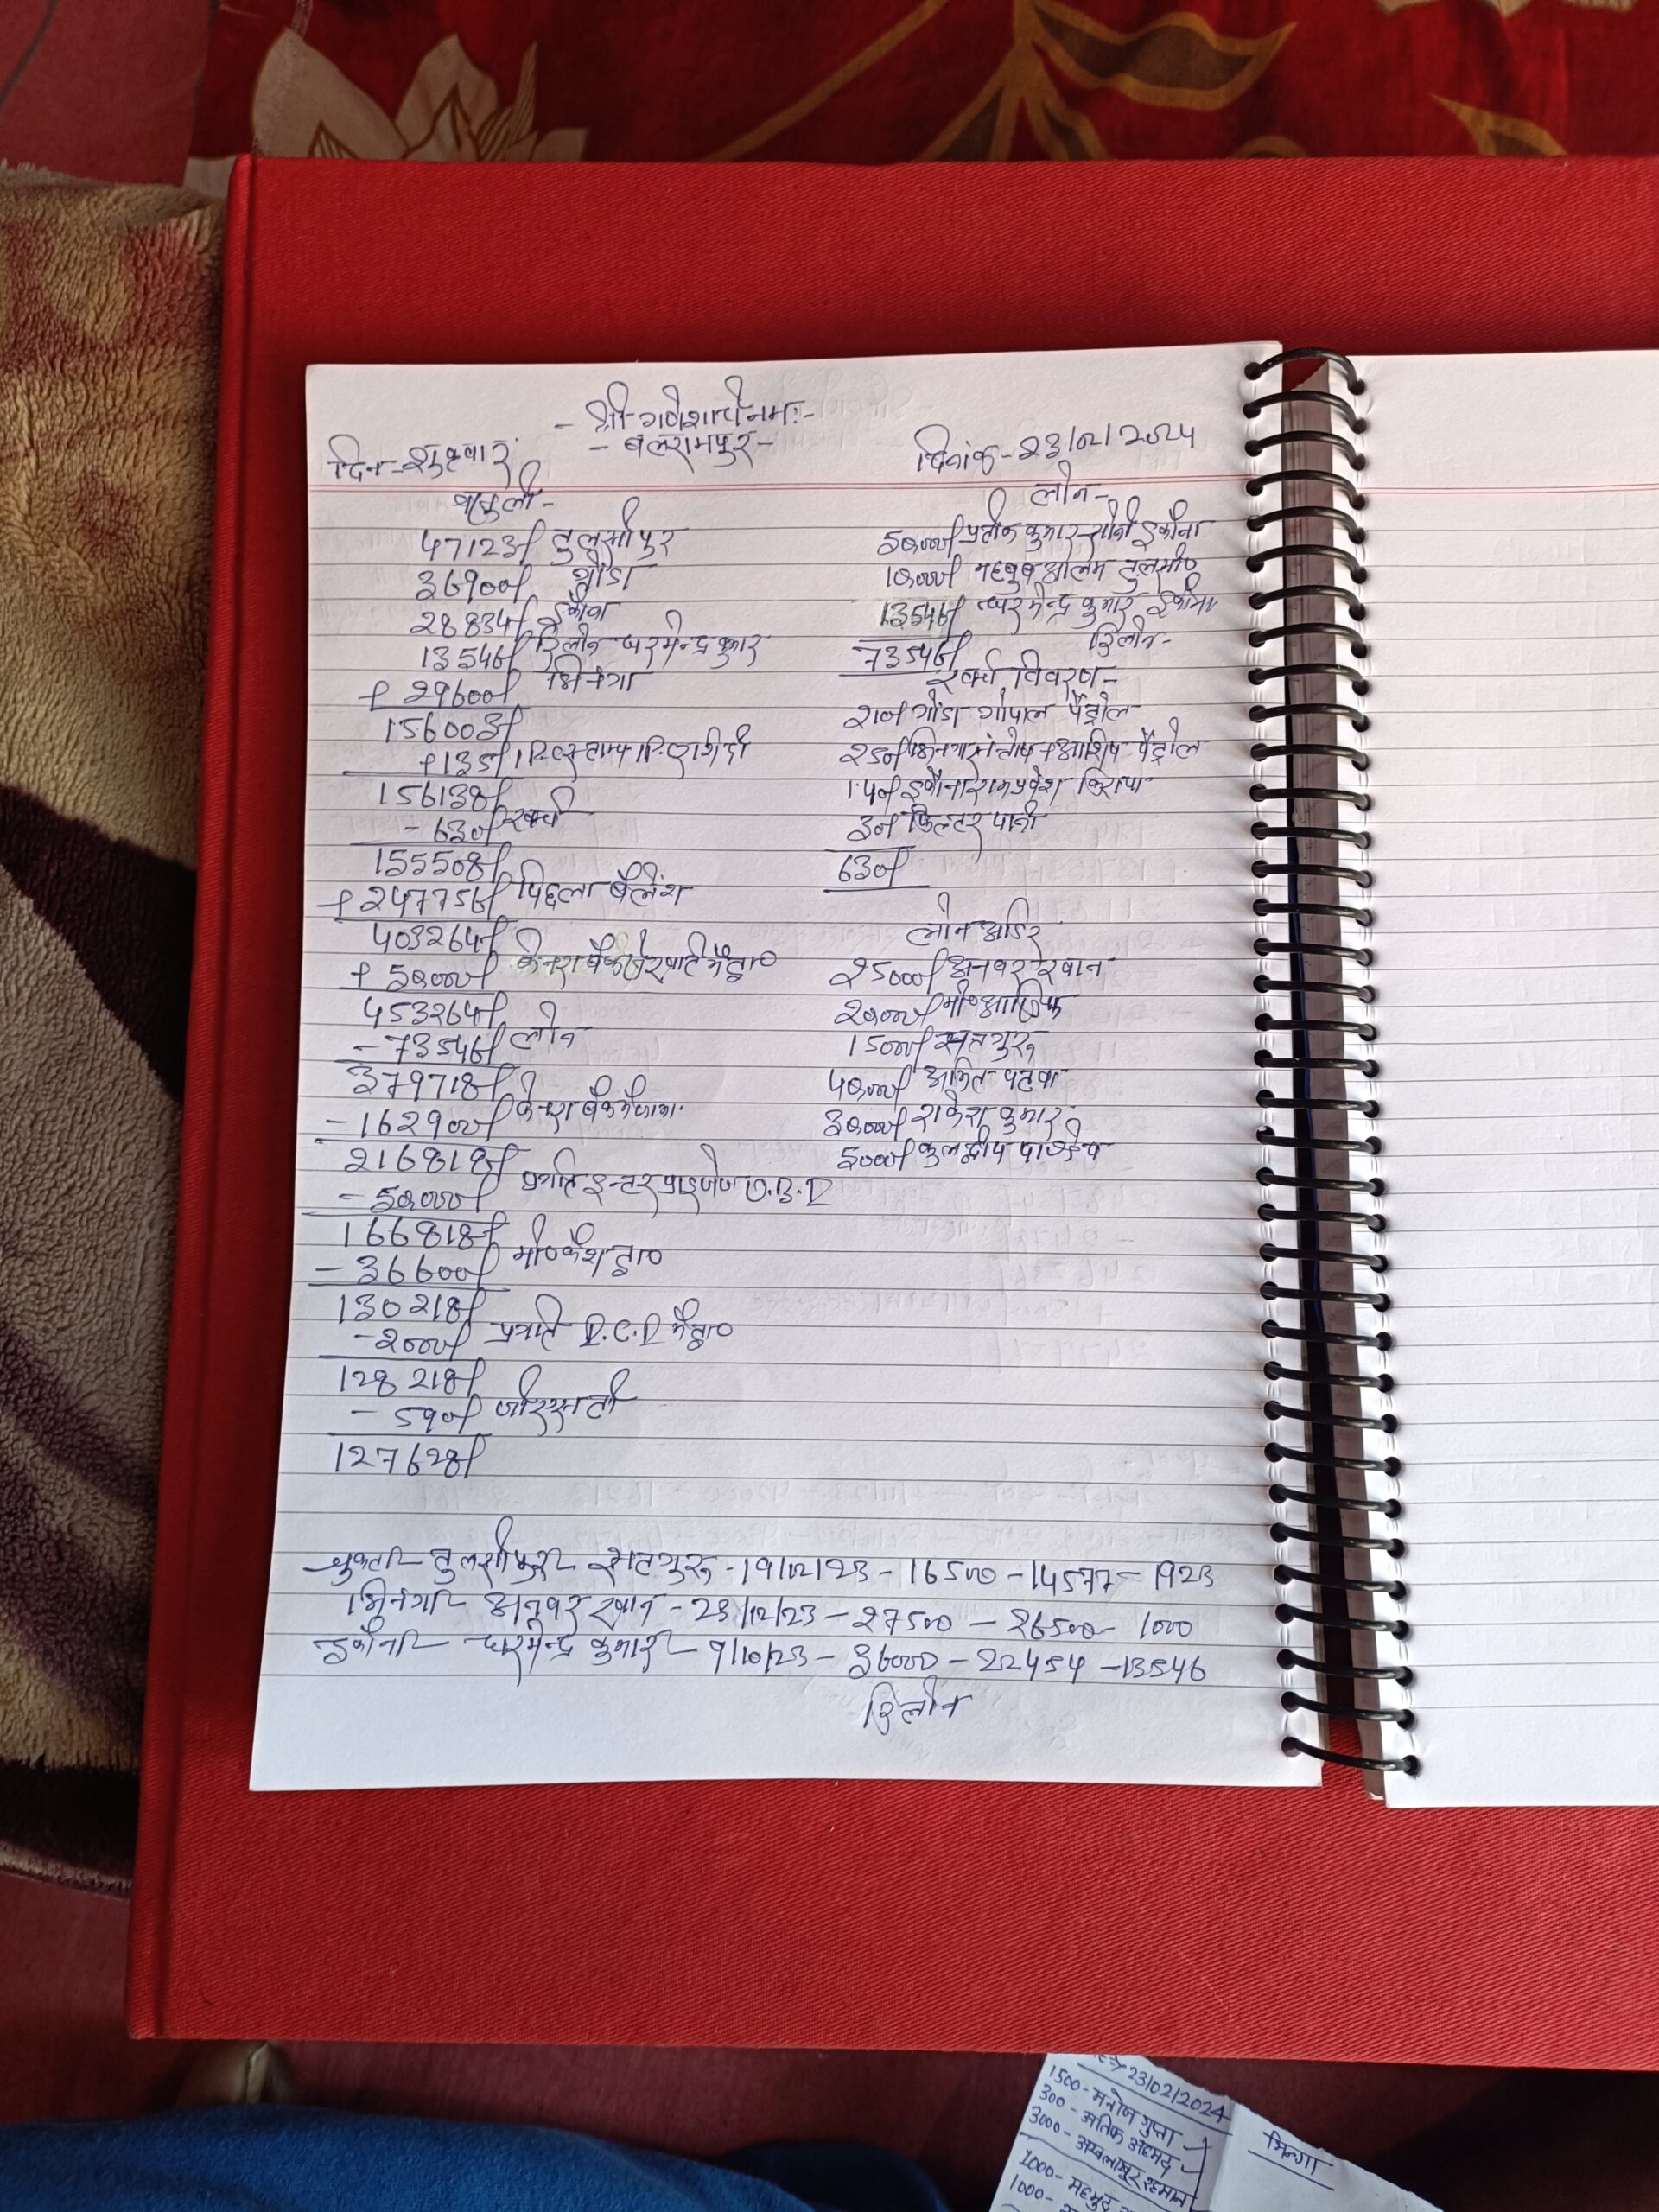 - श्री गणेशाय नमः -
- बलरामपुर -
दिन - शुक्रवार
दिनांक - 23/02/2024
वसूली -
47123/ तुलसीपुर
36900/ गोंडा
28834/ इकौना
13546/ रिलोन धरमेन्द्र कुमार
+ 29600/ भिनगा
156003/
+135/
156138/
- 630/ खर्चा
155508/
+ 247756/ पिछला बैलेंश
403264/
+ 50000/ केनरा बैंक
453264/
- 73546/ लोन
379718/
- 162900/ केनरा बैंक में जमा
216818/
- 50000/ प्रगति इन्टर प्राइजेज O.B.D
166818/
- 36600/ मो० कैश द्वा०
130218/
- 2000/ प्रगति D.C.D में द्वा०
128218/
- 590/ जीएसटी
127628/
लोन -
50000/ प्रतीक कुमार सोनी इकौना
10000/ महबुब आलम तुलसीपु
13546/ धरमेन्द्र कुमार इकौना
73546/ रिलोन -
खर्चा विवरण -
210/ गोंडा गोपाल पेट्रोल
250/ भिनगा संतोष + आशिष पेट्रोल
140/ इकौना रामप्रवेश किराया
30/ फिल्टर पानी
630/
लोन आर्डर
25000/ अनवर खान
20000/ मो०
15000/ सतगुरू
40000/ अमित पटवा
30000/ राकेश कुमार
5000/ कुलद्वीप पाण्डेय
चुकता - तुलसीपुर - सतगुरू - 19/12/23 - 16500 - 14577 = 1923
भिनगा - अनवर खान - 23/12/23 - 27500 - 26500 - 1000
इकौना - धरमेन्द्र कुमार - 9/10/23 - 36000 - 22454 - 13546
रिलोन
23/02/2024
1500 - मनोज गुप्ता
300 - अतिक अहमद
3000 - रहमान
1000 - महमुद
1000 -
भिन्गा